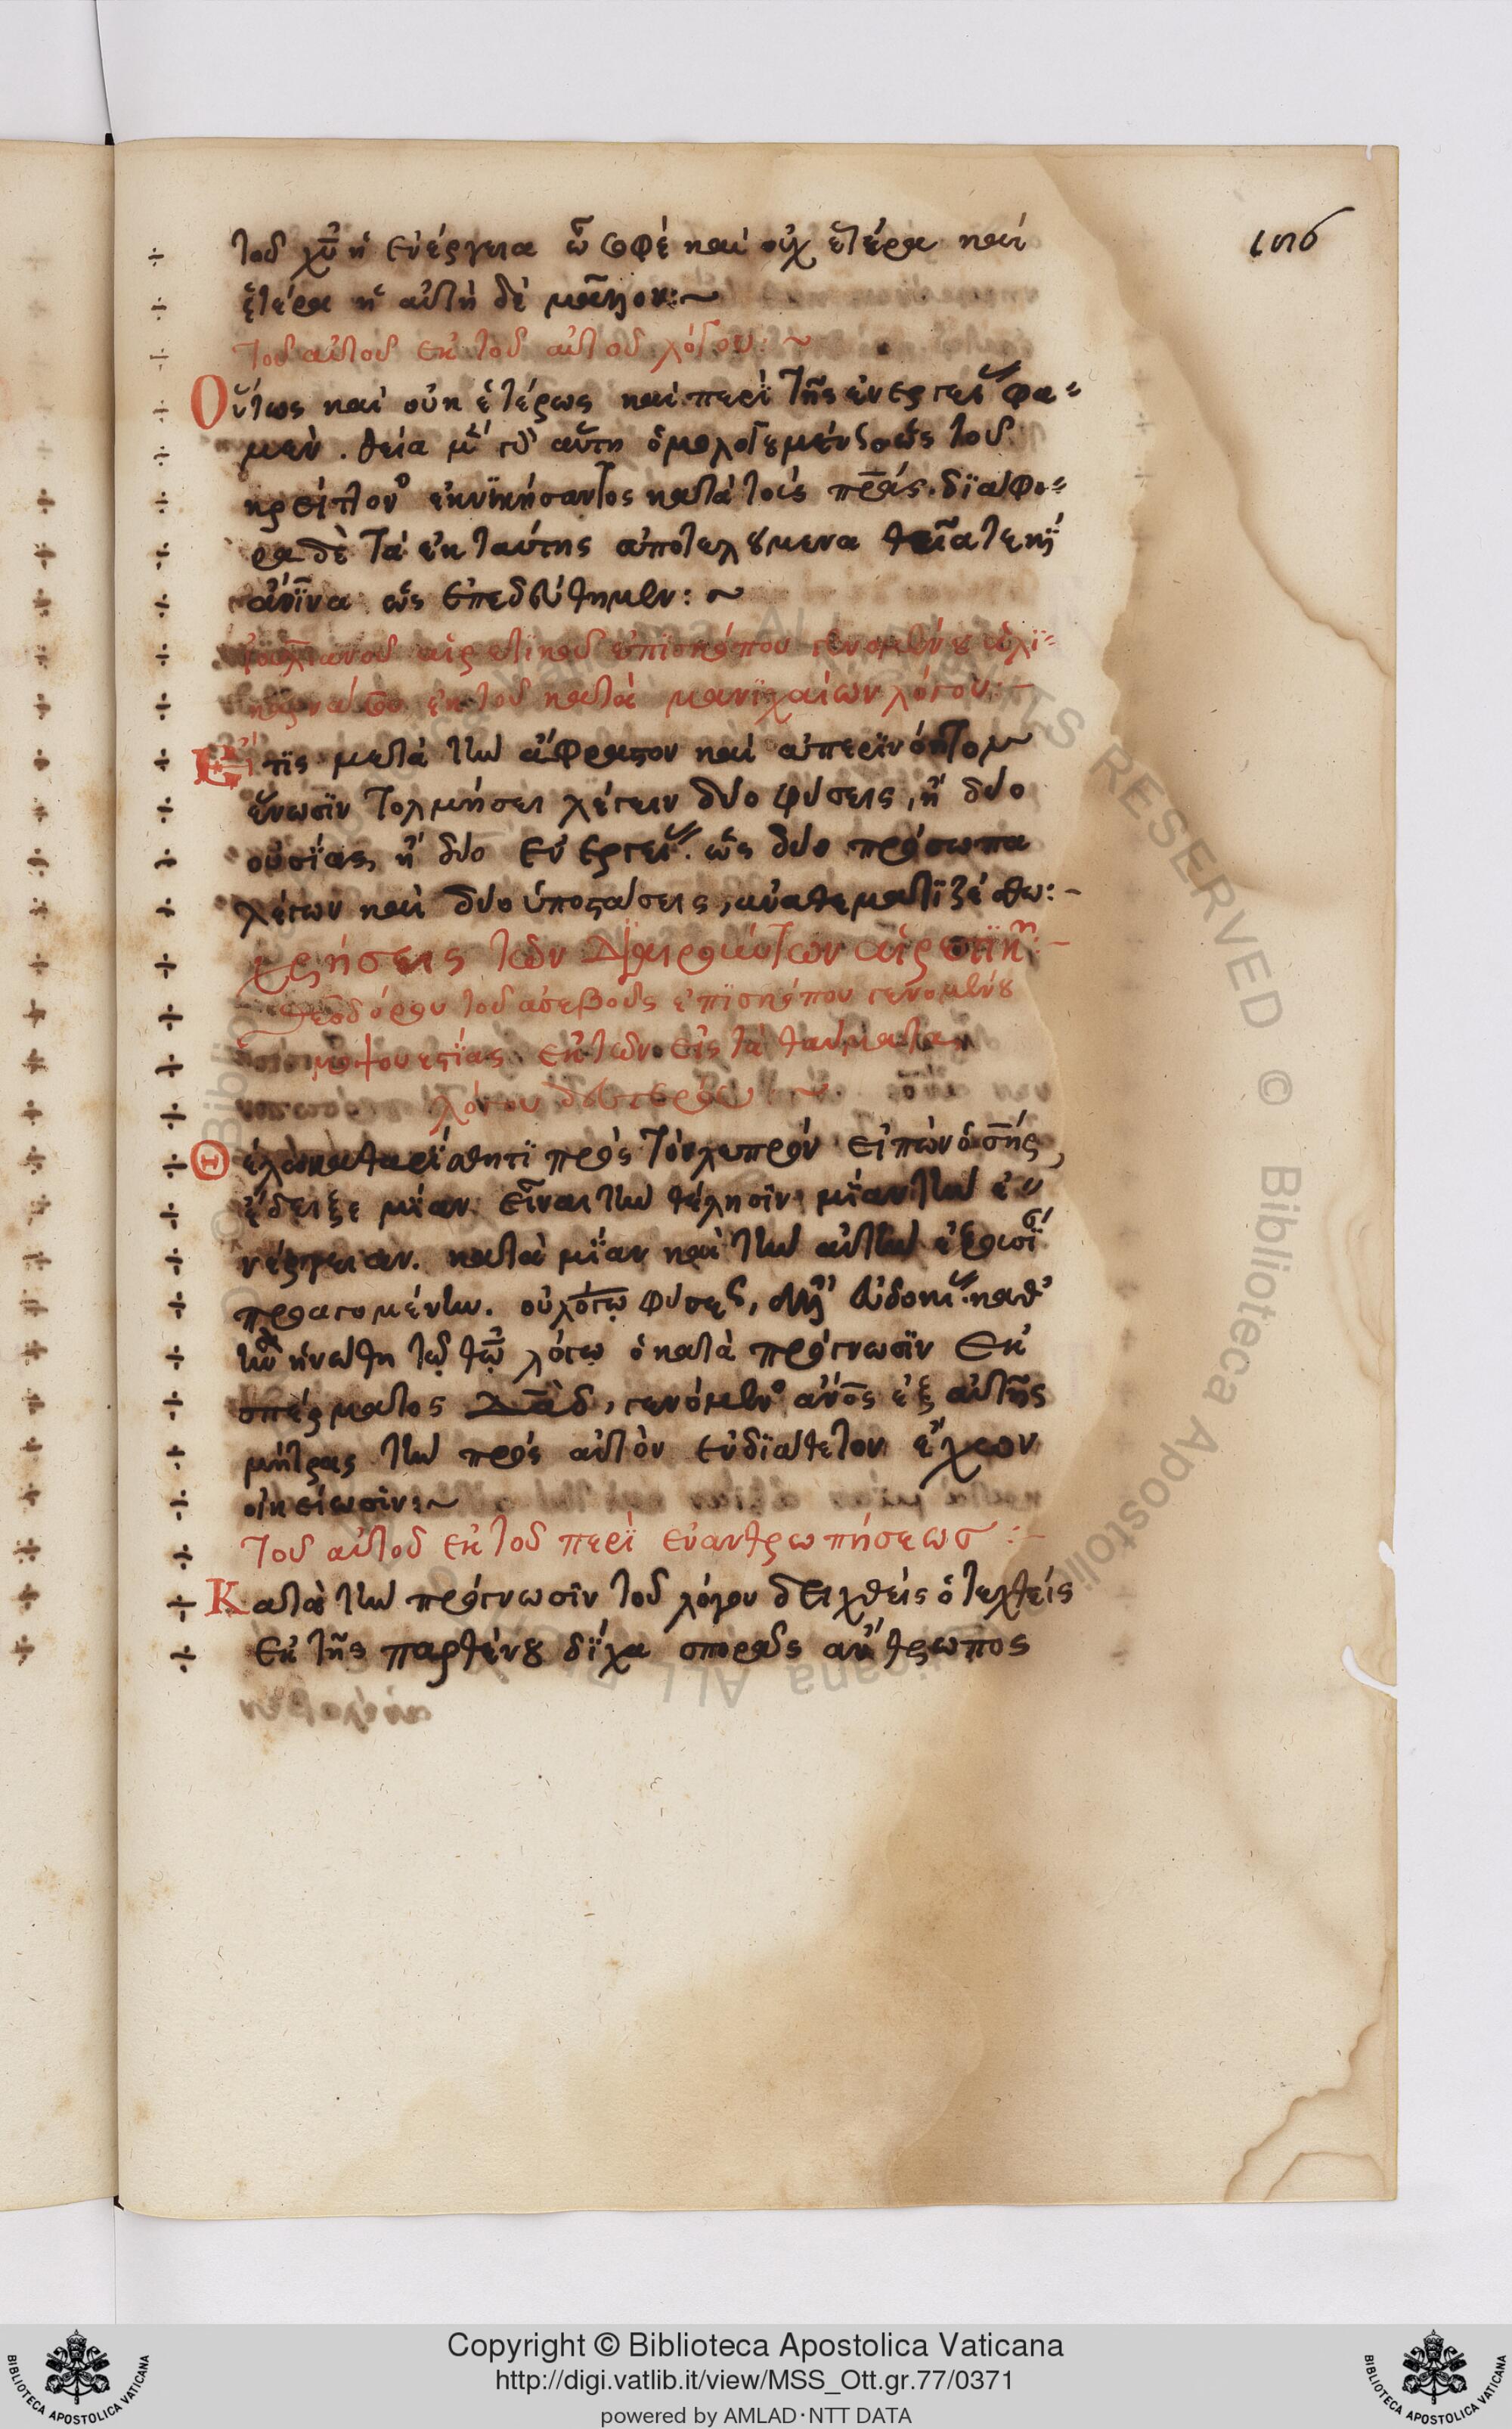 τοῦ χῦ ἡ ἐνέργεια ὦ σοφέ καὶ οὐχ ἑτέρα καὶ
ἑτέρα ἡ αὐτὴ δὲ μᾶλλον:~
τοῦ αὐτοῦ ἐκ τοῦ αὐτοῦ λόγου:~
Οὕτως καὶ οὐκ ἑτέρως καὶ περὶ τῆς ἐνεργείας φα=
μὲν. θεία μὲν γὰρ αὕτη ὁμολογουμένως ὡς τοῦ
κρείττονος ἐκνικήσαντος κατὰ τὰς πράς. διάφο=
ρα δὲ τὰ ἐκ ταύτης ἀποτελούμενα θεῖα τε καὶ
ἀνῖνα ὡς ἐπεδείχθημεν:~
αἱρετικοῦ ἐπισκόπου γενομένου ἁλι=
ἐκ τοῦ κατὰ μανιχαίων λόγου:-
Εἴ τις μετὰ τὴν ἄφραστον καὶ ἀπερινόητον
ἕνωσιν τολμήσει λέγειν δύο φύσεις, ἢ δύο
οὐσίας, ἢ δύο ἐνεργείας. ὡς δύο πρόσωπα
λέγων καὶ δύο ὑποστάσεις, ἀναθεματιζέσθω:-
χρήσεις τῶν αἱρετικῶν:-
Θεοδώρου τοῦ ἀσεβοῦς ἐπισκόπου γενομένου
μοψουεστίας ἐκ τῶν εἰς τὰ θαύματα
λόγου δευτέρου:~
Θέλω καθαρίσθητι πρὸς τὸν λεπρὸν εἰπὼν ὁ σῆς,
ἔδειξε μίαν εἶναι τὴν θέλησιν μίαν τὴν ἐ
νέργειαν. κατὰ μίαν καὶ τὴν αὐτὴν ἐξουσίαν
πραγομένην. οὐ λόγῳ φύσεως, ἀλλ' εὐδοκίας. καθ'
ἣν ἡνώθη τῷ θῷ λόγῳ ὁ κατὰ πρόγνωσιν ἐκ
σπέρματος δᾱδ, γενόμενος ἄνος ἐξ αὐτῆς
μήτρας τὴν πρὸς αὐτὸν ἐνδιάθετον ἔχων
οἰκείωσιν:~
Τοῦ αὐτοῦ ἐκ τοῦ περὶ ἐνανθρωπήσεως:-
Κατὰ τὴν πρόγνωσιν τοῦ λόγου δειχθεὶς ὁ τεχθεὶς
ἐκ τῆς παρθένου δίχα σπορᾶς ἄνθρωπος
Copyright © Biblioteca Apostolica Vaticana
http://digi.vatlib.it/view/MSS_Ott.gr.77/0371
powered by AMLAD·NTT DATA
BIBLIOTECA APOSTOLICA VATICANA
BIBLIOTECA APOSTOLICA VATICANA